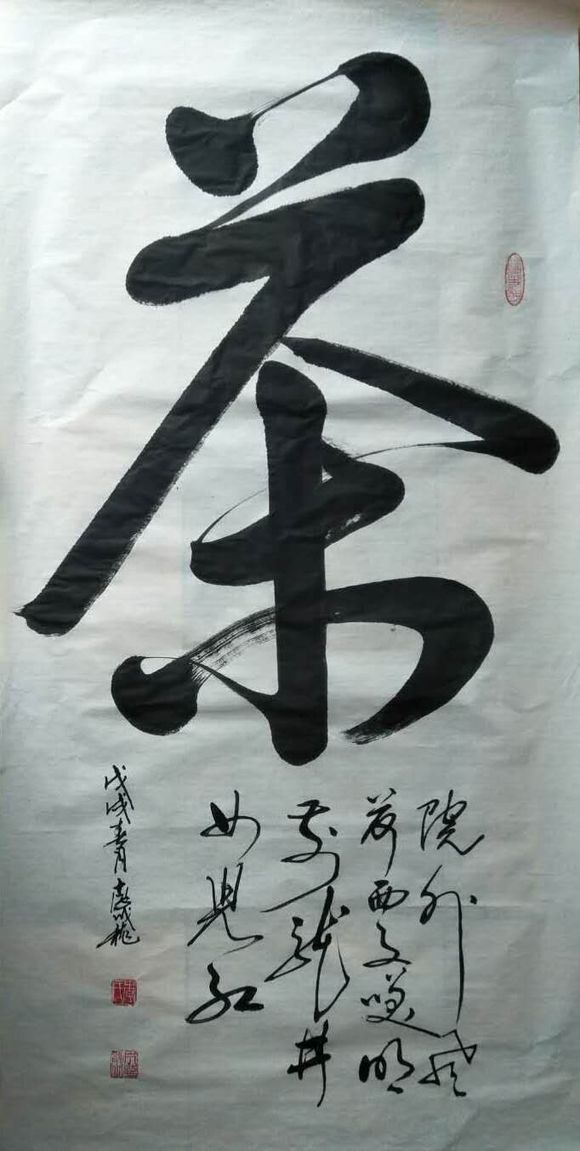 茶
院外风
荷西子咲明
前龙井
女儿红
戊戌春月